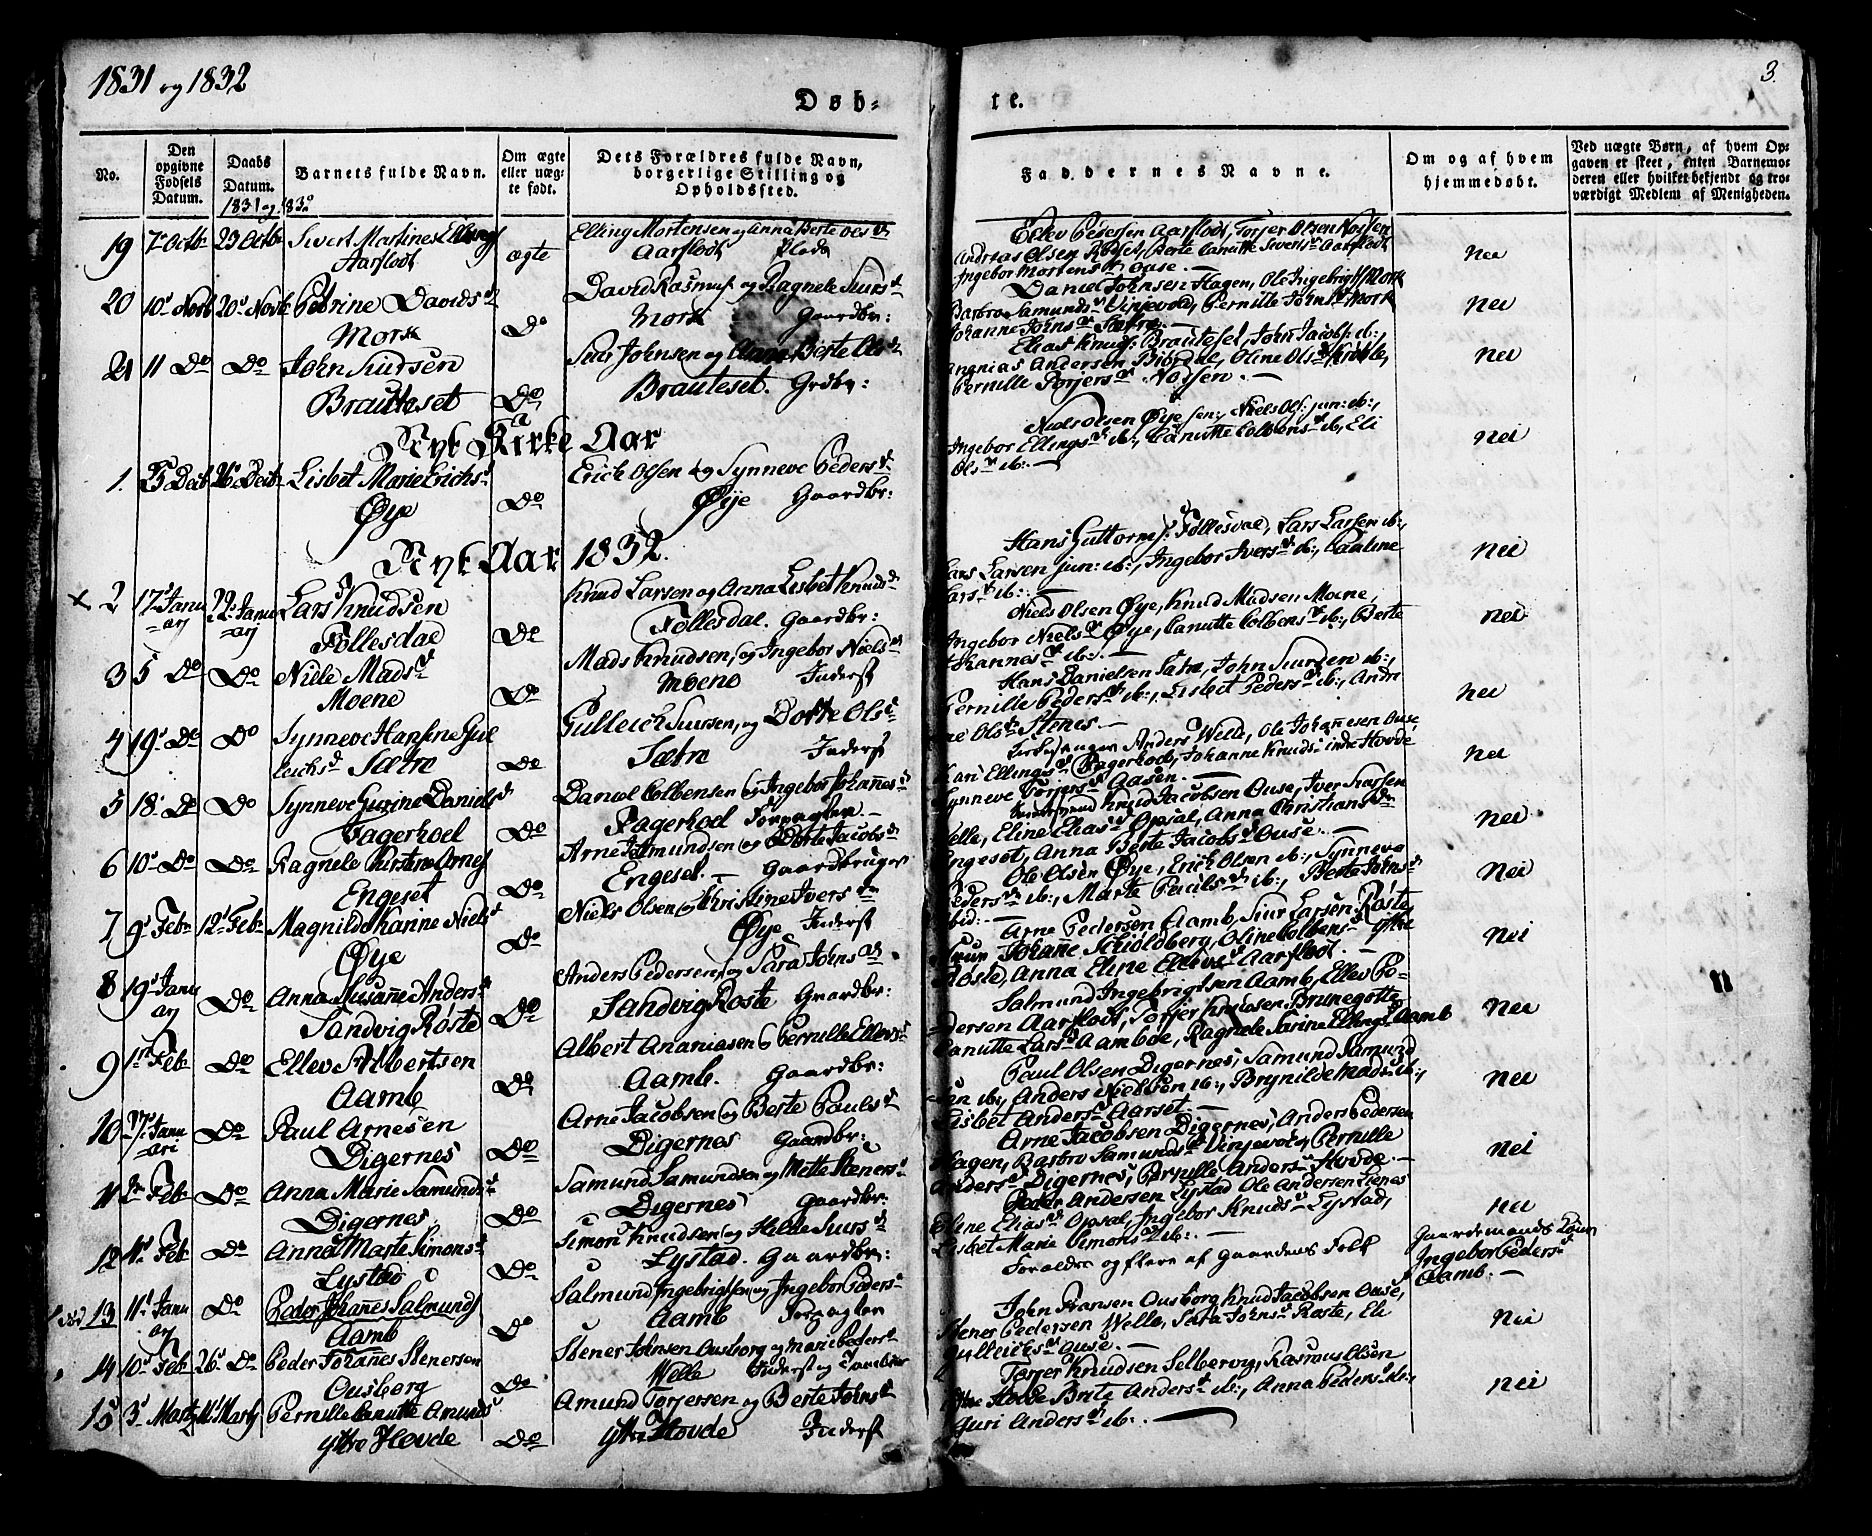 1831 og 1832
3.
Døb-
te.
No.
Den opgivne Fødsels Datum.
Daabs Datum.
1831 og 1832
Barnets fulde Navn.
Om ægte eller uægte født.
Dets Forældres fulde Navn, borgerlige Stilling og Opholdssted.
Faddernes Navne.
Om og af hvem hjemmedøbt.
Ved uægte Børn, af hvem Opgaven er skeet, enten Barnemoderen eller hvilket bekjendt og troværdigt Medlem af Menigheden.
19 7de Octbr 23 Octbr Sivert Martines Ellings
Aarflodt ægte
Elling Mortensen og Anna Berte Olsdr
Aarflodt Plads
Pedersen Aarflodt, Torjer Olsen Nossen
Andreas Olsen Røset, Berte Canutte Siversdr Aarflodt
Ingebor Mortensdr Ouse.
Nei
20 10de Novb 20de Novb Petrine Davidsdr
Mork Do
David Rasmus og Ragnele Siursdr
Mork Gaardbr:
Daniel Johnsen Hagen, Ole Ingebrigts Mork
Barbro Samundsdr Vinjevold, Pernille Johnsdr Mork
Johanne Johnsdr Sætre.
Nei
21 11 Do Do John Siursen
Brauteset Do
Siur Johnsen og Berte Olsdr
Brauteset. Grdbr:
Elias Knuds: Brauteset, John Jacobs: ib:,
Ananias Andersen Biørdal, Oline Olsdr
Pernille Torjersdr Nossen.
Nei
Nyt Kirke Aar
1. 25 Decb 26 Decb Lisbet Marie Erichsdr
Øye Do
Erich Olsen og Synneve Pedersdr
Øye Gaardbr:
Niels Olsen Øye sen:, Niels Ols: jun: ib:,
Ingebor Ellingsdr ib:, Canutte Colbensdr ib, Eli
Olsdr ib:
Nei
Nyt Aar 1832.
x 2 17de Januarj 22 Januarj Lars Knudsen
Follesdal Do
Knud Larsen og Anna Lisbet Knudsdr
Follesdal. Gaardbr:
Hans Guttorms: Follesdal, Lars Larsen ib:,
Lars Larsen jun: ib:, Ingebor Iversdr ib:, Pauline
Larsdr ib:
Nei
3 5 Do Do Niele Madsdr
Moene Do
Mads Knudsen, og Ingebor Nielsdr
Moene Inderst
Niels Olsen Øye, Knud Madsen Moene,
Ingebor Nielsdr Øye, Canutte Colbensdr ib:, Berte
Johannesdr ib:.
Nei
4 19de Do Do Synneve Hansine Gul
leichsdr Sætre Do
Gulleich Siursen, og Dorte Olsdr
Sætre Inderst
Hans Danielsen Sætre, John Siursen ib:,
Pernille Pedersdr ib:, Lisbet Pedersdr ib:, Andri
ne Olsdr Stenes.
Nei
5 18de Do Do Synneve Gurine Danielsdr
Fagerhoel Do
Daniel Colbensen og Ingebor Johannesdr
Fagerhoel Forpagter.
Anders Welle, Ole Johannesen Ouse,
Kari Ellingsdr Fagerhoel, Johanne Knudsdr indre Hovde
Synneve Torjersdr Aasen.
Nei
6 10de Do Do Ragnele Kirstine Arnesdr
Engeset Do
Arne Amundsen og Dorte Jacobsdr
Engeset. Gaardbruger
Knud Jacobsen Ouse, Iver Larsen
Welle, Eline Eliasdr Opsal, Anna Christiansdr
Engeset, Anna Berte Jacobsdr Ouse.
Nei
7 9de Febr 12te Febr Magnilde Hanne Nielsdr
Øye Do
Niels Olsen og Christine Iversdr
Øye Inderst
Ole Olsen Øye, Erich Olsen ib:, Synneve
Pedersdr ib:, Marte Poulsdr ib:, Berte Johnsdr
ibid:
Nei
8 19de Januarj Do Anna Susanne Andersdr
Sandvig Røste Do
Anders Pedersen, og Sara Johnsdr
Sandvig Røste Gaardbr:
Arne Pedersen Aamb, Siur Larsen Røste,
Johanne Schioldberg, Oline Colbensdr Ytre
Røste, Anna Eline Ellevsdr Aarflot.
Nei
9 1ste Febr Do Ellev Albertsen
Aamb Do
Albert Ananiasen og Pernille Ellevsdr
Aamb. Gaardbr:
Salmund Ingebrigtsen Aamb, Ellev Pe-
dersen Aarflodt, Torjer Knudsen Brunegotte
Canutte Larsdr Aamboe, Ragnele Sarine Ellingsdr Aamb
Nei
10 17de Januari Do Paul Arnesen
Digernes Do
Arne Jacobsen og Berte Paulsdr
Digernes Gaardbr:
Paul Olsen Digernes, Samund Samund
sen ib:, Anders Nielsen ib:, Brynilde Madsdr ib:,
Lisbet Andersdr Aarset.
Nei
11 2den Febr Do Anna Marie Samundsdr
Digernes Do
Samund Samundsen og Mette Stenersdr
Digernes Gaardbr:
Arne Jacobsen Digernes, Anders Pedersen
Hagen, Barbro Samundsdr Vinjevold, Pernille
Andersdr Digernes, Pernille Andersdr Hovde.
Nei
12 11te Febr Do Anna Marte Simonsdr
Lystad Do
Simon Knudsen og Helde Siursdr
Lystad. Gaardbr:
Peder Andersen Lystad Ole Andersen Lienes
Eline Eliasdr Opsal, Ingebor Knudsdr Lystad,
Lisbet Marie Simonsdr ib:.
Nei
13 11te Januarj Do Peder Johannes Salmunds
Aamb Do
Salmund Ingebrigtsen og Ingebor Pedersdr
Aamb Forpagter
Forældre og flere af Gaardens Folk
Gaardemands Kone
Ingebor Pedersdr
Aamb.
14 10de Febr 26de Do Peder Johannes Stenersen
Ousborg Do
Stener Johnsen Ousborg og Marie Pedersdr
Welle Inderst og Tambour
John Hansen Ousborg Knud Jacobsen Ouse,
Stener Pedersen Welle, Sara Johnsdr Røste, Eli
Gulleichsdr Ouse.
Nei
15 3de Martz 11te Martz Pernille Canutte Amundsdr
Ytre Hovde Do
Amund Torjersen og Berte Johnsdr
Ytre Hovde Inderst
Torjer Knudsen Selbervig, Rasmus Olsen
Ytre Hovde Brite Andersdr ib:, Anna Pedersdr ib:,
Guri Andersdr ib:.
Nei